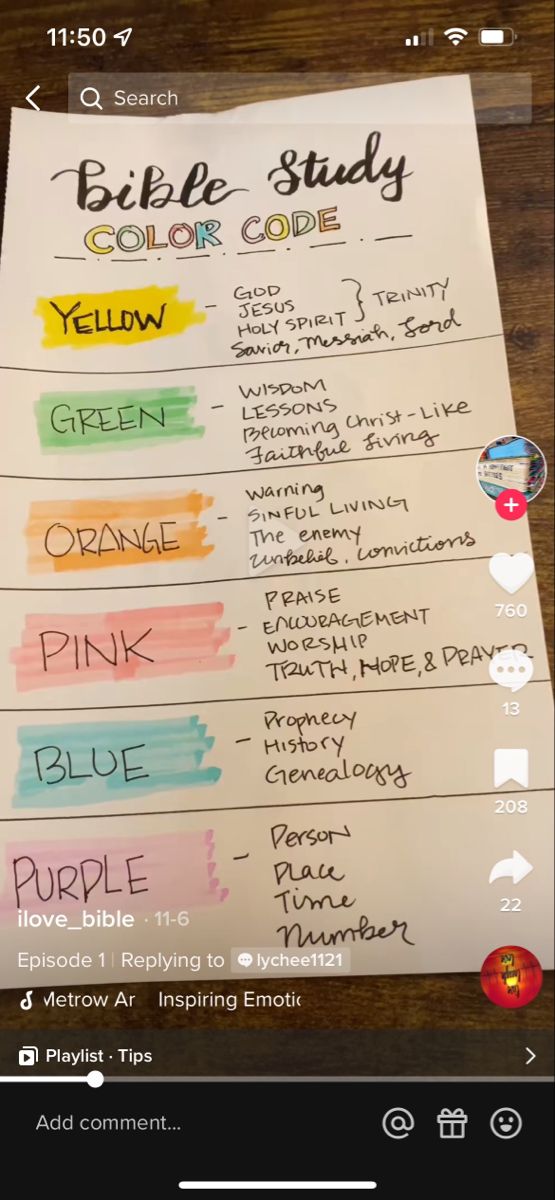 11:50
Search
Bible Study
COLOR CODE
YELLOW - GOD
JESUS
HOLY SPIRIT } TRINITY
Savior, Messiah, Lord
GREEN - WISDOM
LESSONS
Becoming Christ-Like
Faithful Living
ORANGE - Warning
SINFUL LIVING
The enemy
Unbelief, Convictions
PINK - PRAISE
ENCOURAGEMENT
WORSHIP
TRUTH, HOPE, & PRAYER
760
13
BLUE - Prophecy
History
Genealogy
208
PURPLE - Person
Place
Time
Number
22
ilove_bible · 11-6
Episode 1 | Replying to lychee1121
Metrow Ar Inspiring Emotic
Playlist · Tips
Add comment...